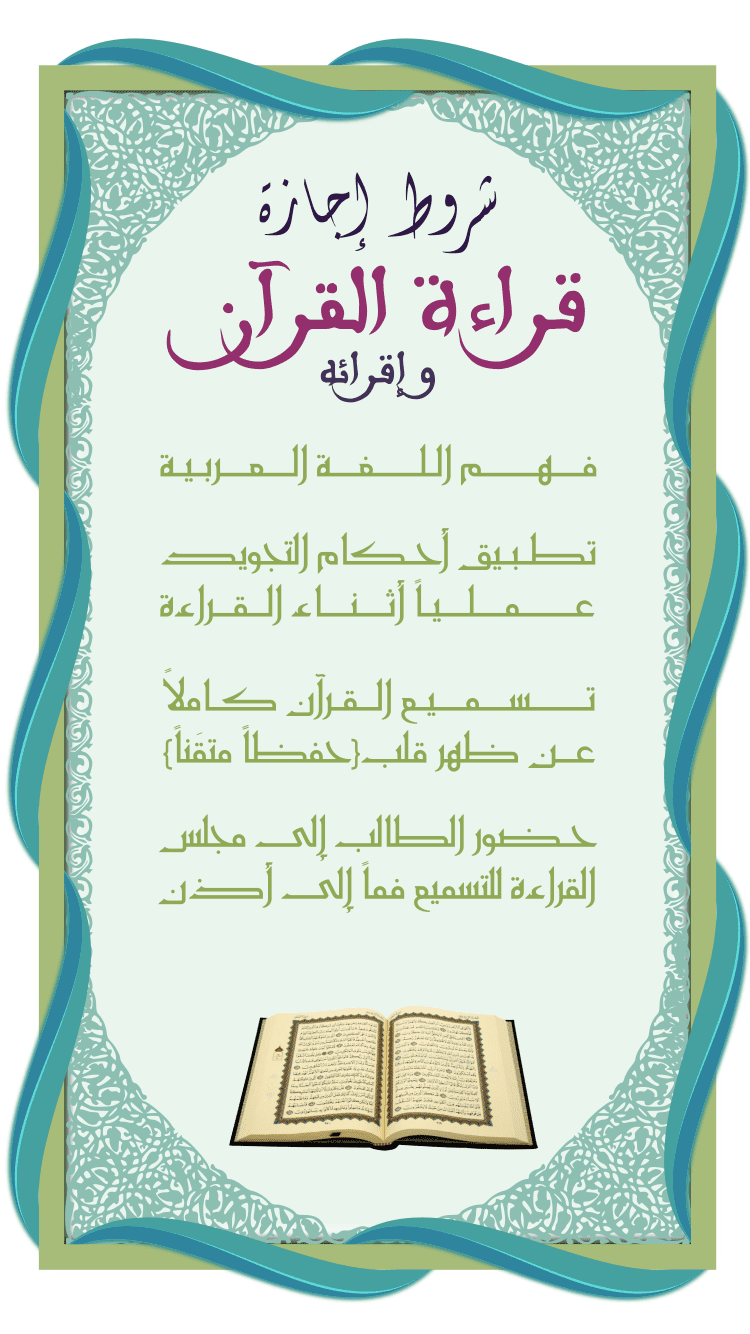 شروط إجازة
قراءة القرآن
وإقرائه
فهم اللغة العربية
تطبيق أحكام التجويد
عملياً أثناء القراءة
تسميع القرآن كاملاً
عن ظهر قلب{حفظاً متقَناً}
حضور الطالب إلى مجلس
القراءة للتسميع فماً إلى أذن